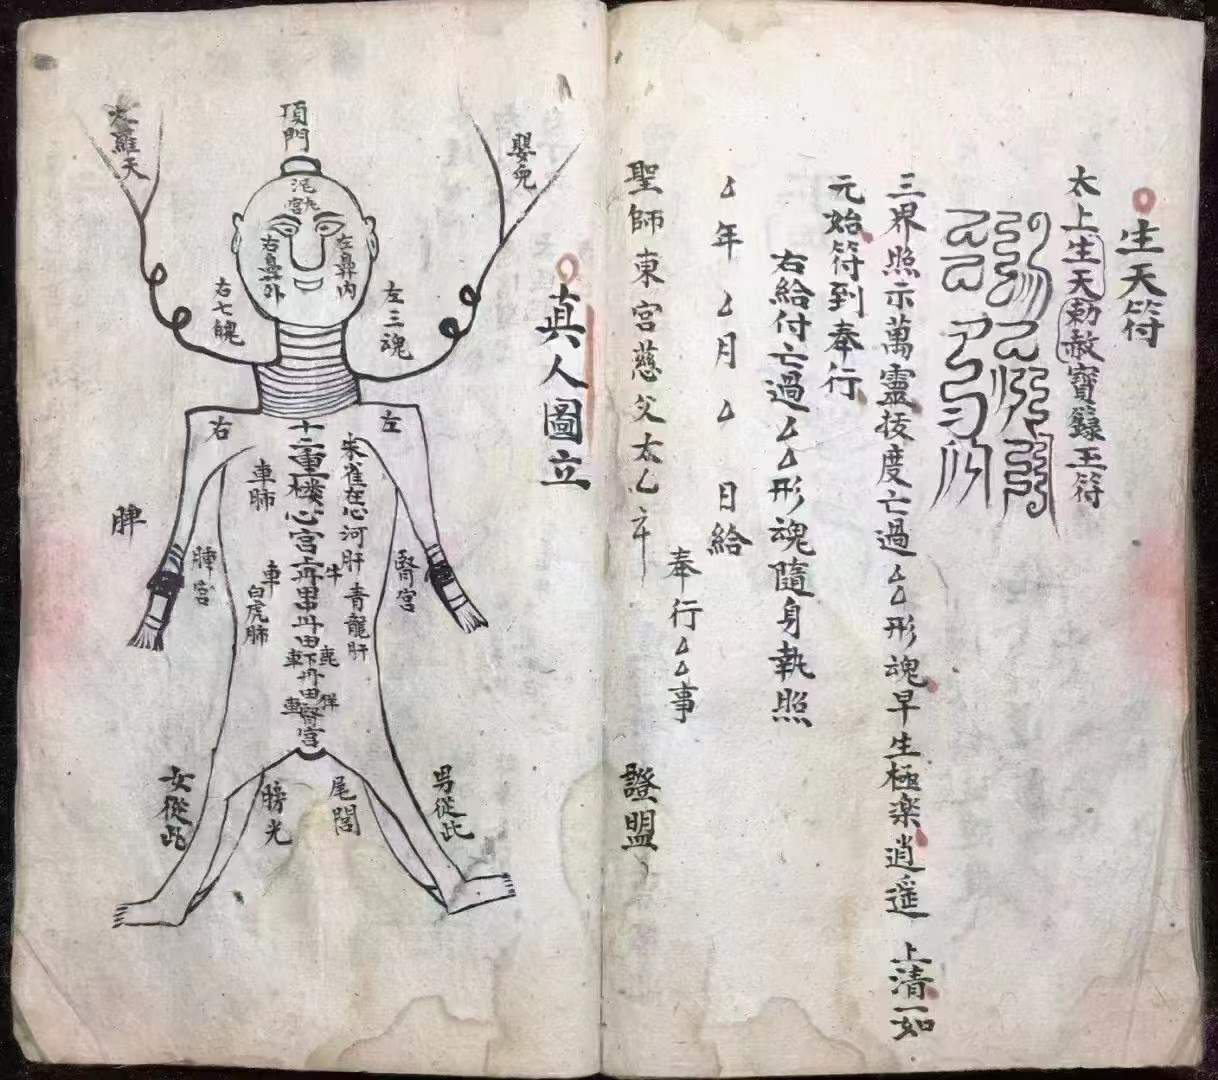 生天符
太上生天勅赦寶籙玉符
三界照示萬靈拔度亡過厶厶形魂早生極楽逍遥 上清一如
元始符到奉行
右給付亡過厶厶形魂隨身執照
厶年厶月厶日給
奉行厶厶事
聖師東宮慈父太乙 證盟
真人圖立
頂門
泥丸宮
嬰兒
大羅天
左鼻内
右鼻外
左三魂
右七魄
左
右
十二重楼心宮
丹田下丹田腎宮
朱雀在心河肝
青龍肝
車肺
車
白虎肺
牛
鹿
車
車
腎宮
脾
脾宮
男從此
女從此
尾閭
膀光